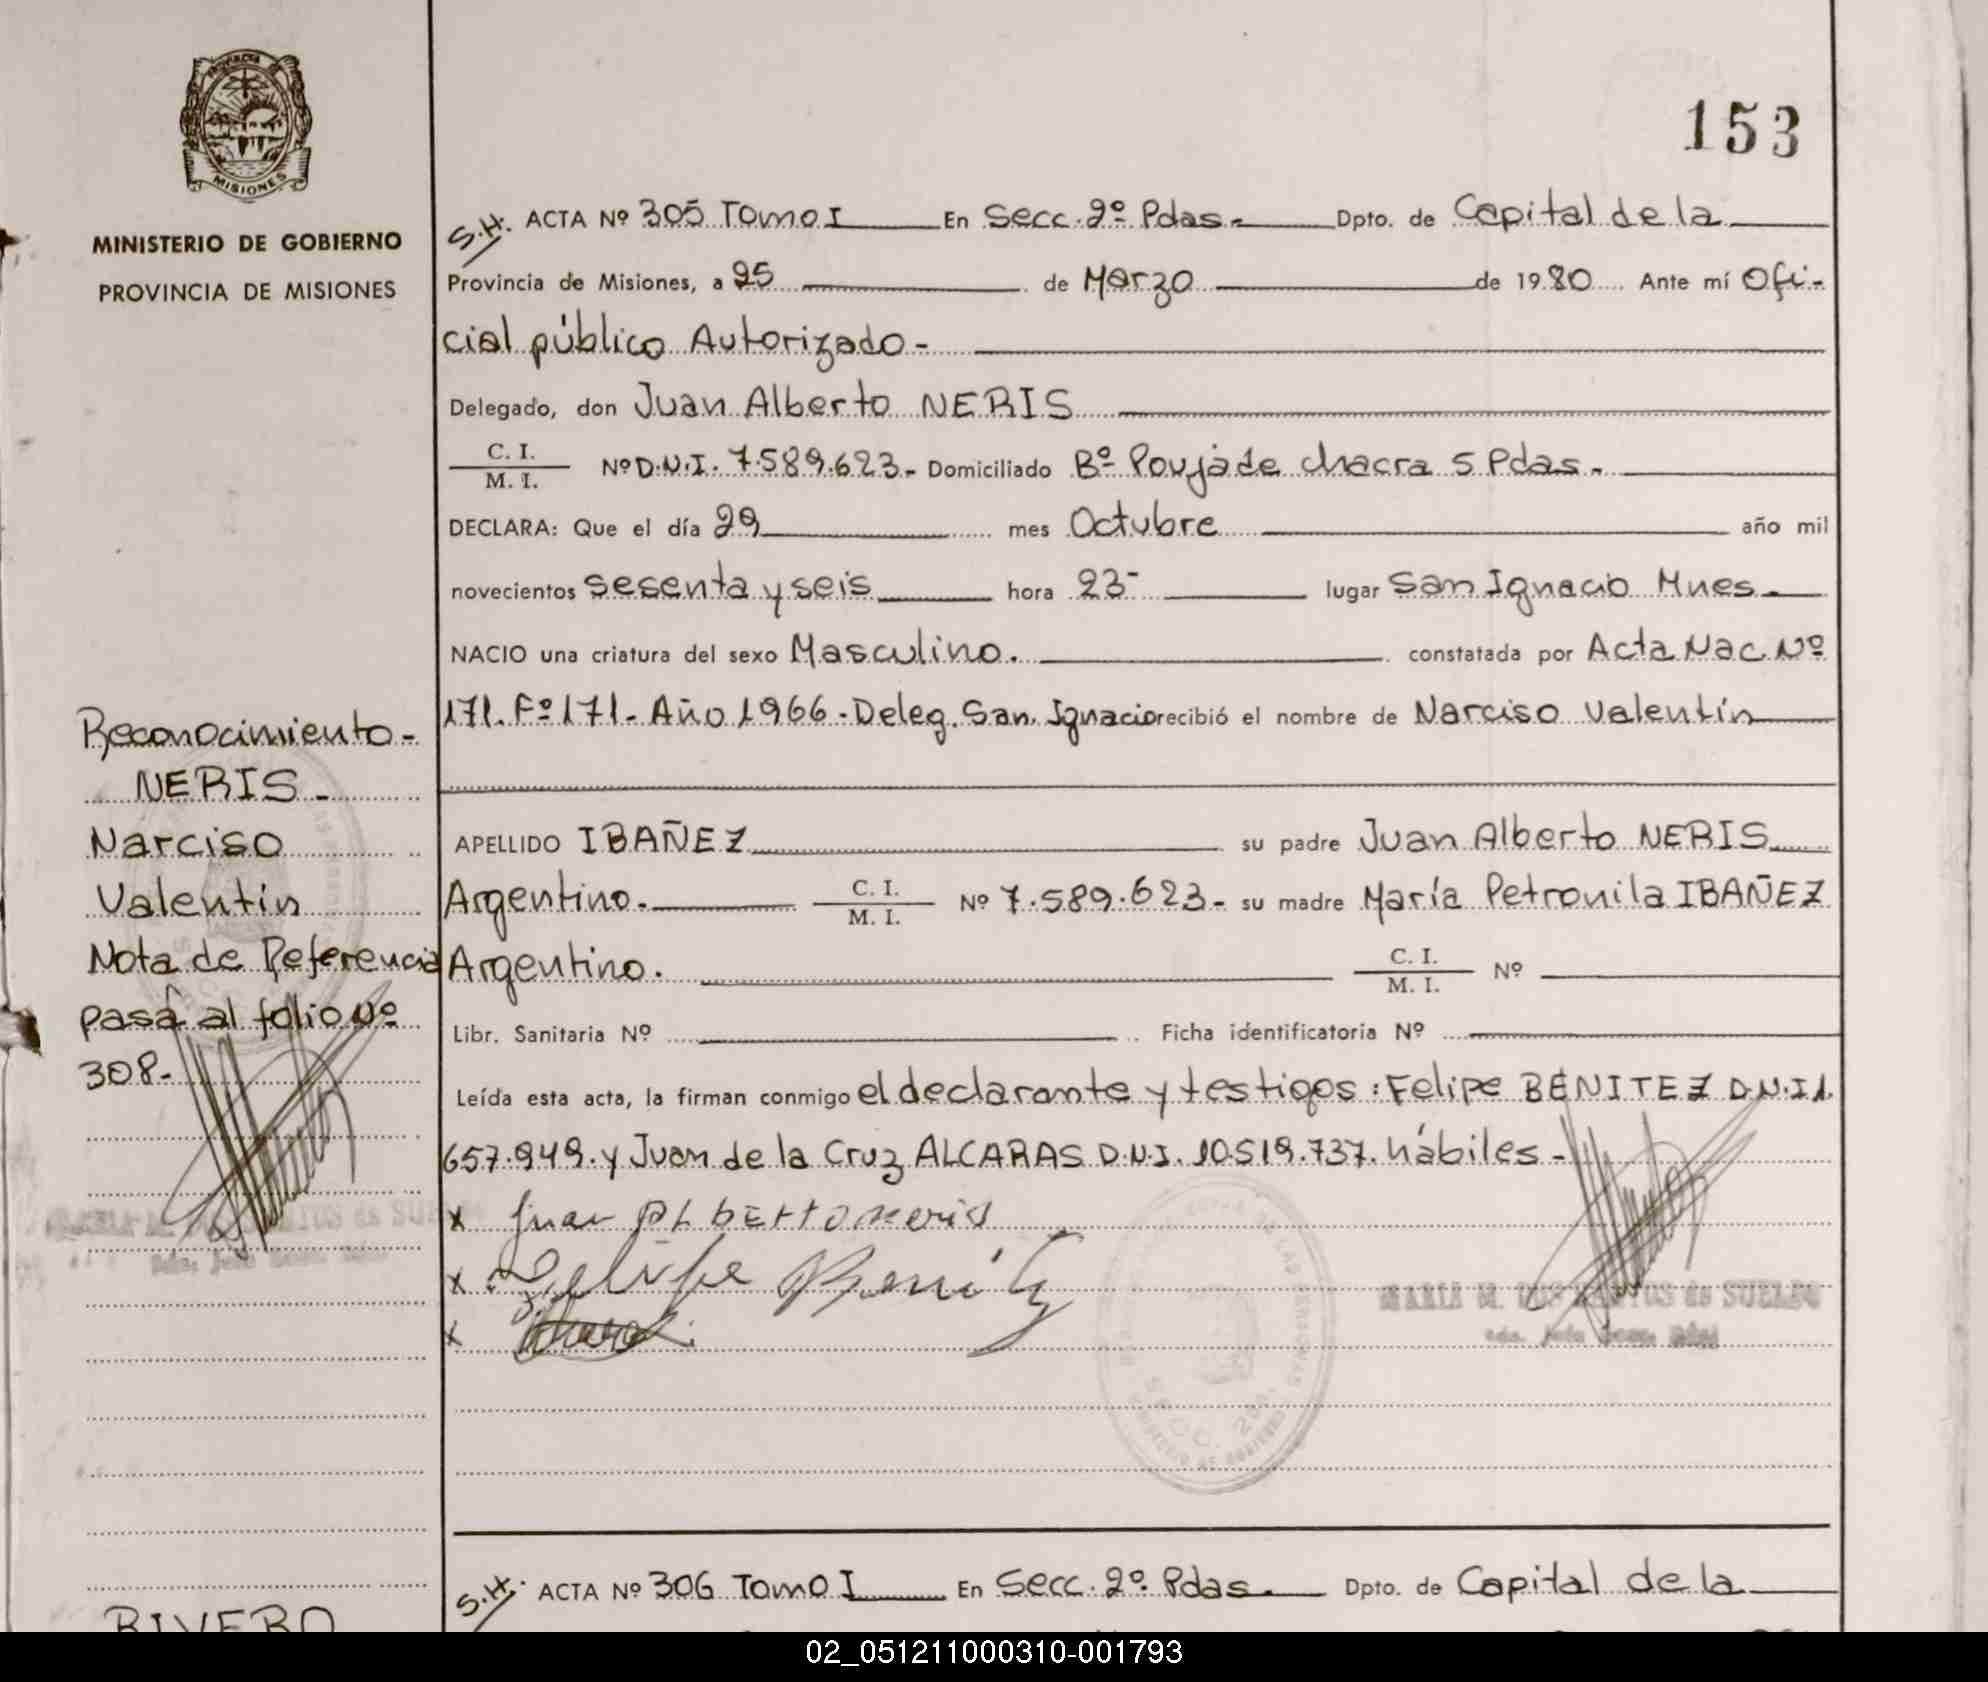 153
PROVINCIA DE
MISIONES
MINISTERIO DE GOBIERNO
PROVINCIA DE MISIONES
S.H. ACTA Nº 305 Tomo I En Secc. 2º Pdas.- Dpto. de Capital de la
Provincia de Misiones, a 25 de Marzo de 1980 Ante mí Ofi-
cial público Autorizado-
Delegado, don Juan Alberto NERIS
C. I.
M. I. Nº D.N.I. 7.589.623.- Domiciliado Bº Poujade chacra 5 Pdas.-
DECLARA: Que el día 29 mes Octubre año mil
novecientos sesenta y seis hora 23- lugar San Ignacio Mnes.-
NACIO una criatura del sexo Masculino. constatada por Acta Nac. Nº
171. Fº 171- Año 1966.- Deleg. San Ignacio recibió el nombre de Narciso Valentín
Reconocimiento-
NERIS-
Narciso
Valentín
Nota de Referencia
pasa al folio Nº
308-
APELLIDO IBAÑEZ su padre Juan Alberto NERIS
Argentino.- C. I.
M. I. Nº 7.589.623.- su madre María Petronila IBAÑEZ
Argentino. C. I.
M. I. Nº
Libr. Sanitaria Nº Ficha identificatoria Nº
Leída esta acta, la firman conmigo el declarante y testigos: Felipe BENITEZ D.N.I 1.
657.949. y Juan de la Cruz ALCARAS D.N.I. 10.519.737. hábiles-
x Juan ALbERTO Neris
x Felipe Benitez
x
MARIA M. DOS SANTOS de SUELDO
SECC. 2da.
S.H. ACTA Nº 306 Tomo I En Secc. 2º Pdas.- Dpto. de Capital de la
RIVERO
02_051211000310-001793